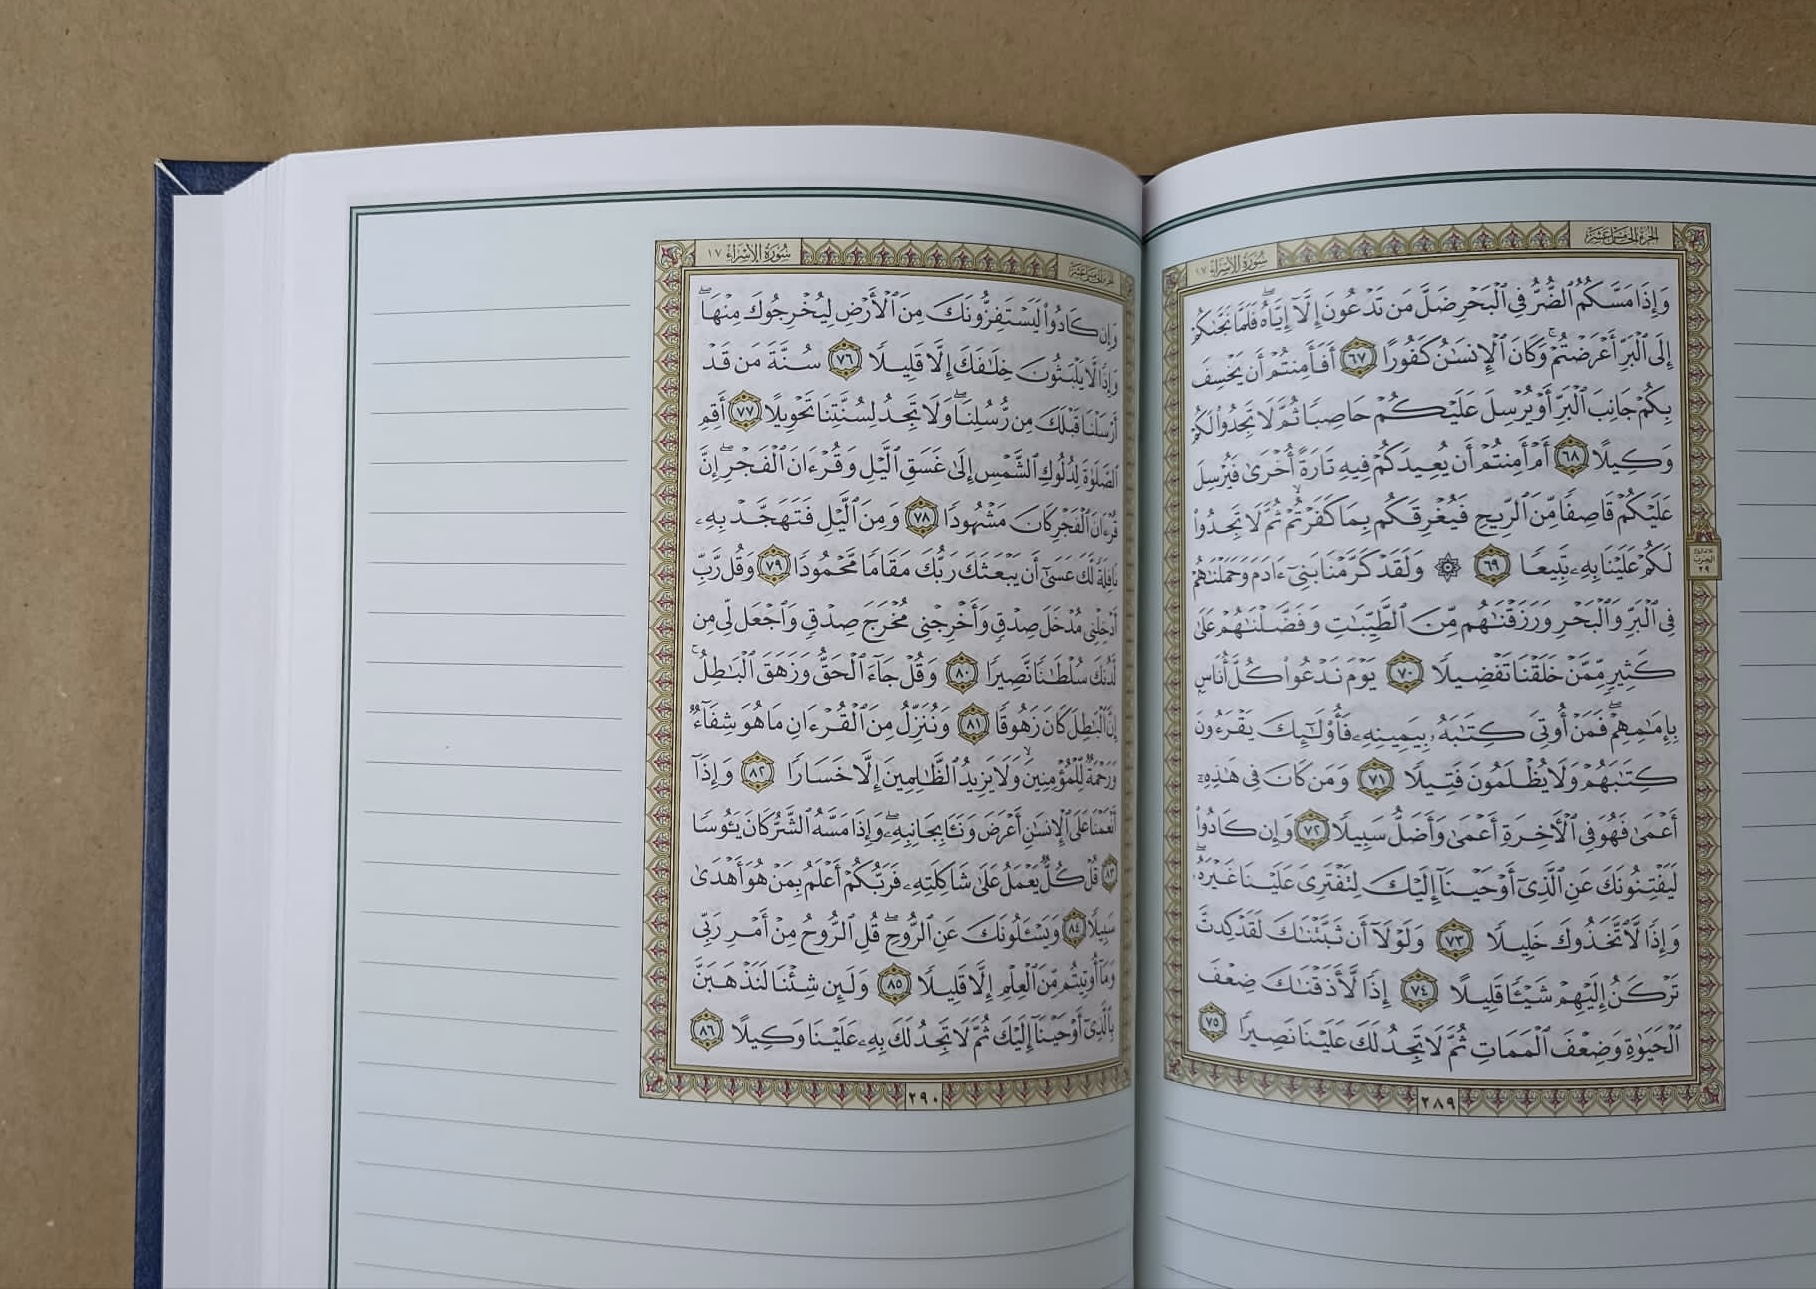 الجزء الخامس عشر
سورة الإسراء ١٧
وَإِذَا مَسَّكُمُ ٱلضُّرُّ فِى ٱلْبَحْرِ ضَلَّ مَن تَدْعُونَ إِلَّآ إِيَّاهُ ۖ فَلَمَّا نَجَّىٰكُمْ
إِلَى ٱلْبَرِّ أَعْرَضْتُمْ ۚ وَكَانَ ٱلْإِنسَٰنُ كَفُورًا ٦٧ أَفَأَمِنتُمْ أَن يَخْسِفَ
بِكُمْ جَانِبَ ٱلْبَرِّ أَوْ يُرْسِلَ عَلَيْكُمْ حَاصِبًا ثُمَّ لَا تَجِدُوا۟ لَكُمْ
وَكِيلًا ٦٨ أَمْ أَمِنتُمْ أَن يُعِيدَكُمْ فِيهِ تَارَةً أُخْرَىٰ فَيُرْسِلَ
عَلَيْكُمْ قَاصِفًا مِّنَ ٱلرِّيحِ فَيُغْرِقَكُم بِمَا كَفَرْتُمْ ۙ ثُمَّ لَا تَجِدُوا۟
لَكُمْ عَلَيْنَا بِهِۦ تَبِيعًا ٦٩ ۞ وَلَقَدْ كَرَّمْنَا بَنِىٓ ءَادَمَ وَحَمَلْنَٰهُمْ
فِى ٱلْبَرِّ وَٱلْبَحْرِ وَرَزَقْنَٰهُم مِّنَ ٱلطَّيِّبَٰتِ وَفَضَّلْنَٰهُمْ عَلَىٰ
كَثِيرٍ مِّمَّنْ خَلَقْنَا تَفْضِيلًا ٧٠ يَوْمَ نَدْعُوا۟ كُلَّ أُنَاسٍۭ
بِإِمَٰمِهِمْ ۖ فَمَنْ أُوتِىَ كِتَٰبَهُۥ بِيَمِينِهِۦ فَأُو۟لَٰٓئِكَ يَقْرَءُونَ
كِتَٰبَهُمْ وَلَا يُظْلَمُونَ فَتِيلًا ٧١ وَمَن كَانَ فِى هَٰذِهِۦٓ
أَعْمَىٰ فَهُوَ فِى ٱلْءَاخِرَةِ أَعْمَىٰ وَأَضَلُّ سَبِيلًا ٧٢ وَإِن كَادُوا۟
لَيَفْتِنُونَكَ عَنِ ٱلَّذِىٓ أَوْحَيْنَآ إِلَيْكَ لِتَفْتَرِىَ عَلَيْنَا غَيْرَهُۥ ۖ
وَإِذًا لَّٱتَّخَذُوكَ خَلِيلًا ٧٣ وَلَوْلَآ أَن ثَبَّتْنَٰكَ لَقَدْ كِدتَّ
تَرْكَنُ إِلَيْهِمْ شَيْـًٔا قَلِيلًا ٧٤ إِذًا لَّأَذَقْنَٰكَ ضِعْفَ
ٱلْحَيَوٰةِ وَضِعْفَ ٱلْمَمَاتِ ثُمَّ لَا تَجِدُ لَكَ عَلَيْنَا نَصِيرًا ٧٥
الحزب
٢٩
٢٨٩
الجزء الخامس عشر
سورة الإسراء ١٧
وَإِن كَادُوا۟ لَيَسْتَفِزُّونَكَ مِنَ ٱلْأَرْضِ لِيُخْرِجُوكَ مِنْهَا ۖ
وَإِذًا لَّا يَلْبَثُونَ خِلَٰفَكَ إِلَّا قَلِيلًا ٧٦ سُنَّةَ مَن قَدْ
أَرْسَلْنَا قَبْلَكَ مِن رُّسُلِنَا ۖ وَلَا تَجِدُ لِسُنَّتِنَا تَحْوِيلًا ٧٧ أَقِمِ
ٱلصَّلَوٰةَ لِدُلُوكِ ٱلشَّمْسِ إِلَىٰ غَسَقِ ٱلَّيْلِ وَقُرْءَانَ ٱلْفَجْرِ ۖ إِنَّ
قُرْءَانَ ٱلْفَجْرِ كَانَ مَشْهُودًا ٧٨ وَمِنَ ٱلَّيْلِ فَتَهَجَّدْ بِهِۦ
نَافِلَةً لَّكَ عَسَىٰٓ أَن يَبْعَثَكَ رَبُّكَ مَقَامًا مَّحْمُودًا ٧٩ وَقُل رَّبِّ
أَدْخِلْنِى مُدْخَلَ صِدْقٍ وَأَخْرِجْنِى مُخْرَجَ صِدْقٍ وَٱجْعَل لِّى مِن
لَّدُنكَ سُلْطَٰنًا نَّصِيرًا ٨٠ وَقُلْ جَآءَ ٱلْحَقُّ وَزَهَقَ ٱلْبَٰطِلُ ۚ
إِنَّ ٱلْبَٰطِلَ كَانَ زَهُوقًا ٨١ وَنُنَزِّلُ مِنَ ٱلْقُرْءَانِ مَا هُوَ شِفَآءٌ
وَرَحْمَةٌ لِّلْمُؤْمِنِينَ ۙ وَلَا يَزِيدُ ٱلظَّٰلِمِينَ إِلَّا خَسَارًا ٨٢ وَإِذَآ
أَنْعَمْنَا عَلَى ٱلْإِنسَٰنِ أَعْرَضَ وَنَـَٔا بِجَانِبِهِۦ ۖ وَإِذَا مَسَّهُ ٱلشَّرُّ كَانَ يَـُٔوسًا
٨٣ قُلْ كُلٌّ يَعْمَلُ عَلَىٰ شَاكِلَتِهِۦ فَرَبُّكُمْ أَعْلَمُ بِمَنْ هُوَ أَهْدَىٰ
سَبِيلًا ٨٤ وَيَسْـَٔلُونَكَ عَنِ ٱلرُّوحِ ۖ قُلِ ٱلرُّوحُ مِنْ أَمْرِ رَبِّى
وَمَآ أُوتِيتُم مِّنَ ٱلْعِلْمِ إِلَّا قَلِيلًا ٨٥ وَلَئِن شِئْنَا لَنَذْهَبَنَّ
بِٱلَّذِىٓ أَوْحَيْنَآ إِلَيْكَ ثُمَّ لَا تَجِدُ لَكَ بِهِۦ عَلَيْنَا وَكِيلًا ٨٦
٢٩٠